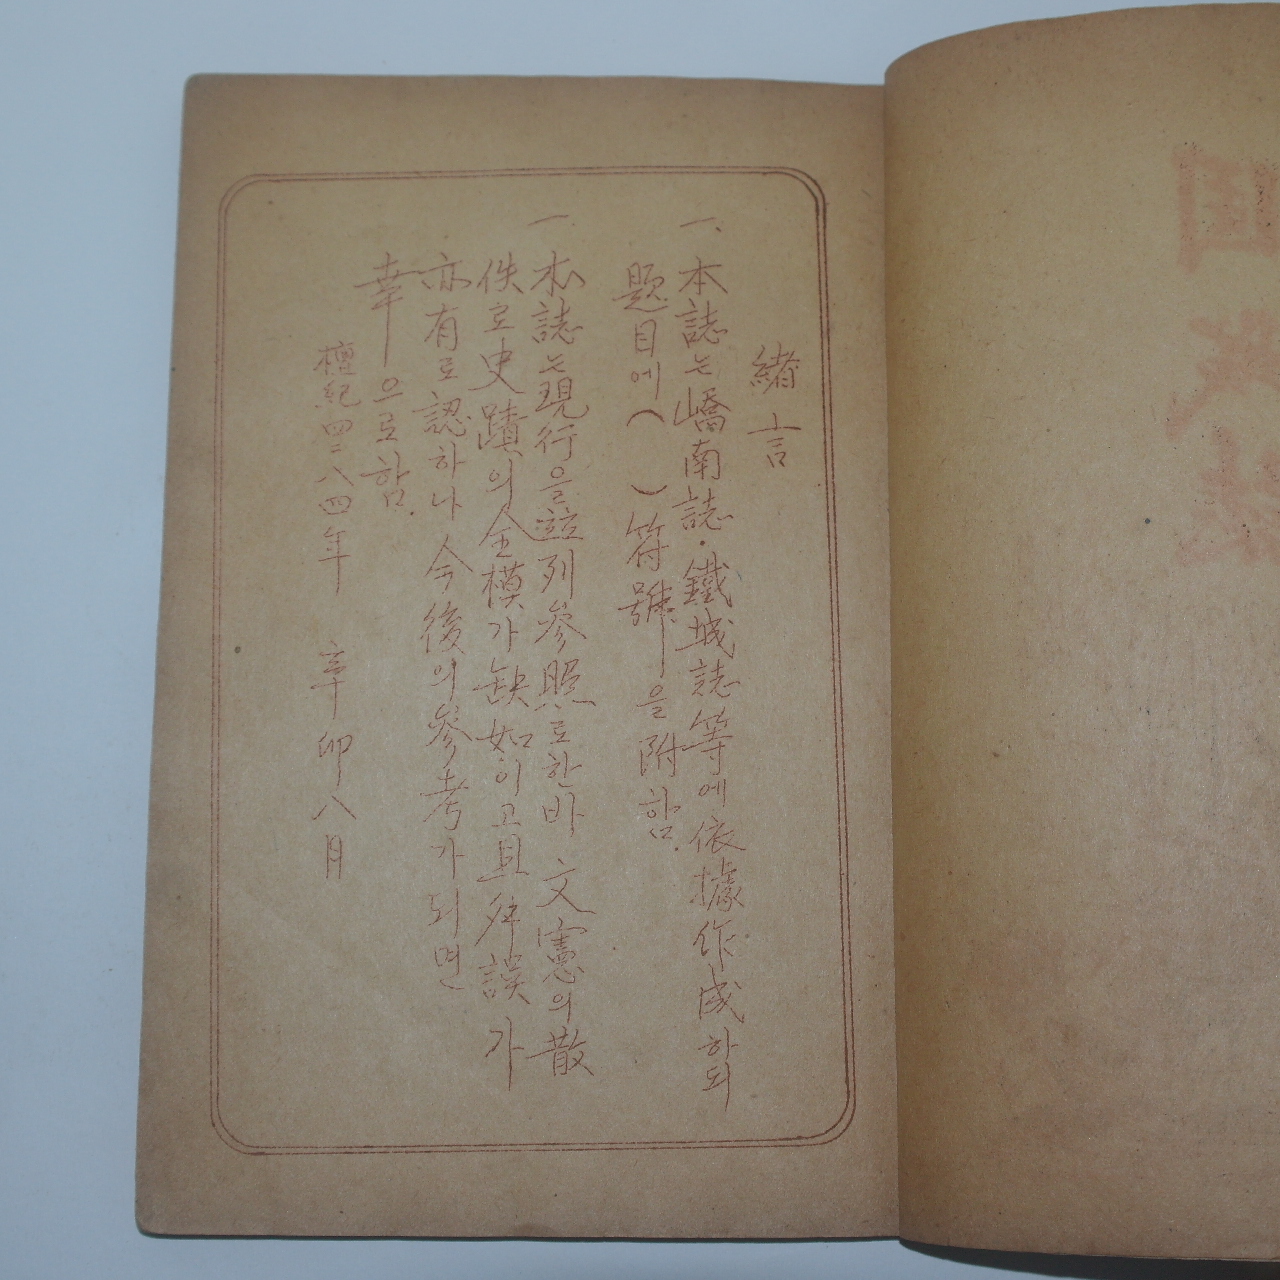 緖言
一、本誌는嶠南誌·鐵城誌等에依據作成하되
題目에( )符號을附함.
一 本誌는現行을並列參照로한바 文憲의散
佚로史蹟의全模가缺如이고且 誤가
亦有로認하나 今後의參考가되면
幸으로함.
檀紀四二八四年 辛卯八月